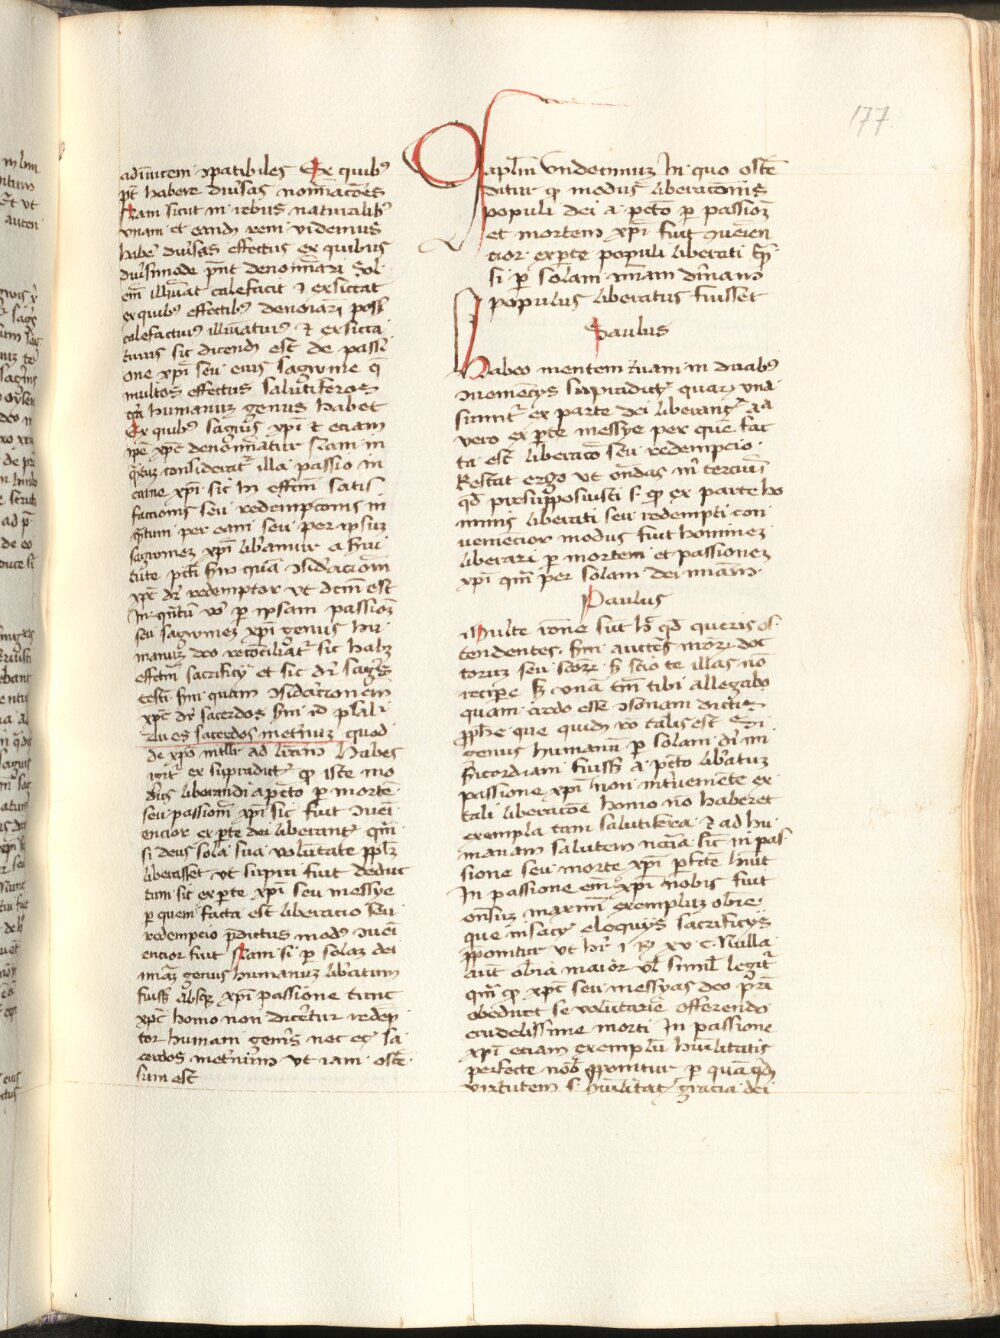 177
adinuicem ɔpatibiles Ex quib9
pt habere diusas nominacões
Nam sicut in rebus naturalib9
vnam et eandē rem videmus
habē diusas effectus ex quibus
diusimode pñt denominari Sol
em illuīat calefacit et exsiccat
ex quib9 effectib9 denoīari poss
calefactiu9 illuīatiu9 et exsicca
tiuus sic dicend est de passi
one xp̄i seu eius sagwine q̄
multos effectus salutiferos
circa humanuz genus habet
Ex quib9 sagwis xp̄i et eciam
ipē xp̄c denominatur Nam in
quantum considerat illa passio in
carne xp̄i sic hn effctm satis
factionis seu redempcionis in
qntum per eam seu per ipsuz
sagwinez xp̄i libamur a serui
tute pcti scdm quā ɔsidacionē
xp̄c dr redemptor vt dcm est
In qntū vo p ipsam passionez
seu sagwinez xp̄i genus hu
manuz deo reconciliat sic habz
effctm sacrificij et sic dr sagwis
testi scdm quam ɔsideracionem
xp̄c dr sacerdos scdm id psal
Tu es sacerdos metnuz quod
de xp̄o intllr ad lram habes
igit ex supradict q iste mo
dus liberandi a pcto p mortē
seu passionē xp̄i sic fuit ɔueni
encior ex pte dei liberant qm
si deus sola sua voluntate pplz
liberasset vt supra fuit deduc
tum sic ex pte xp̄i seu messye
p quem facta est liberacio seu
redempcio pdictus mod9 ɔueni
encior fuit Nam si p solaz dei
miaz genus humanuz libatum
fuiss absqz xp̄i passione tunc
xp̄c homo non dicetur redēp
tor humani genis nec etc sa
cerdos metnum vt iam oste
sum est
Caplm vndecimuz In quo oste
ditur q modus liberacionis
populi dei a pcto p passionez
et mortem xp̄i fuit ɔuenien
cior ex pte populi liberati qm
si p solam miam diuinam
populus liberatus fuisset
Saulus
Habeo mentem tuam in duab9
ɔueniencijs supradict quar vna
sumit ex parte dei liberant alia
vero ex pte messye per que fac
ta est liberaco seu redempcio
Restat ergo vt ondas m terciū
qd presupposuisti s q ex parte ho
minis liberati seu redempti con
ueniencior modus fuit hominez
liberari p mortem et passionez
xp̄i qm per solam dei miam
Paulus
Multe rōne sut h qd queris os
tendentes scdm auctes mōr doc
torum seu scōr s scio te illas nō
recipe s vnā tm tibi allegabo
quam credo esse ɔsonam dictis
pphe que quidē rō talis est Si
genus humanū p solam di mi
sericordiam fuiss a pcto libatuz
passione xp̄i non interueniēte ex
tali liberacione homo nō haberet
exempla tam salutifera et ad hu
manam salutem necia sic in pas
sione seu morte xp̄i pfcte huit
In passione em xp̄i nobis fuit
onsuz maximū exempluz obie
que in sacris eloquijs sacrificijs
pponitur vt hr 1 Rg xv c Nulla
aut obīa maior vl simil legit
qm q xp̄c seu messyas deo pri
obediuit se voluntarie offerendo
crudelissime morti In passione
xp̄i eciam exemplū humilitatis
perfecte nob pponitur p quā qdē
virtutem s humilitat gracia dei